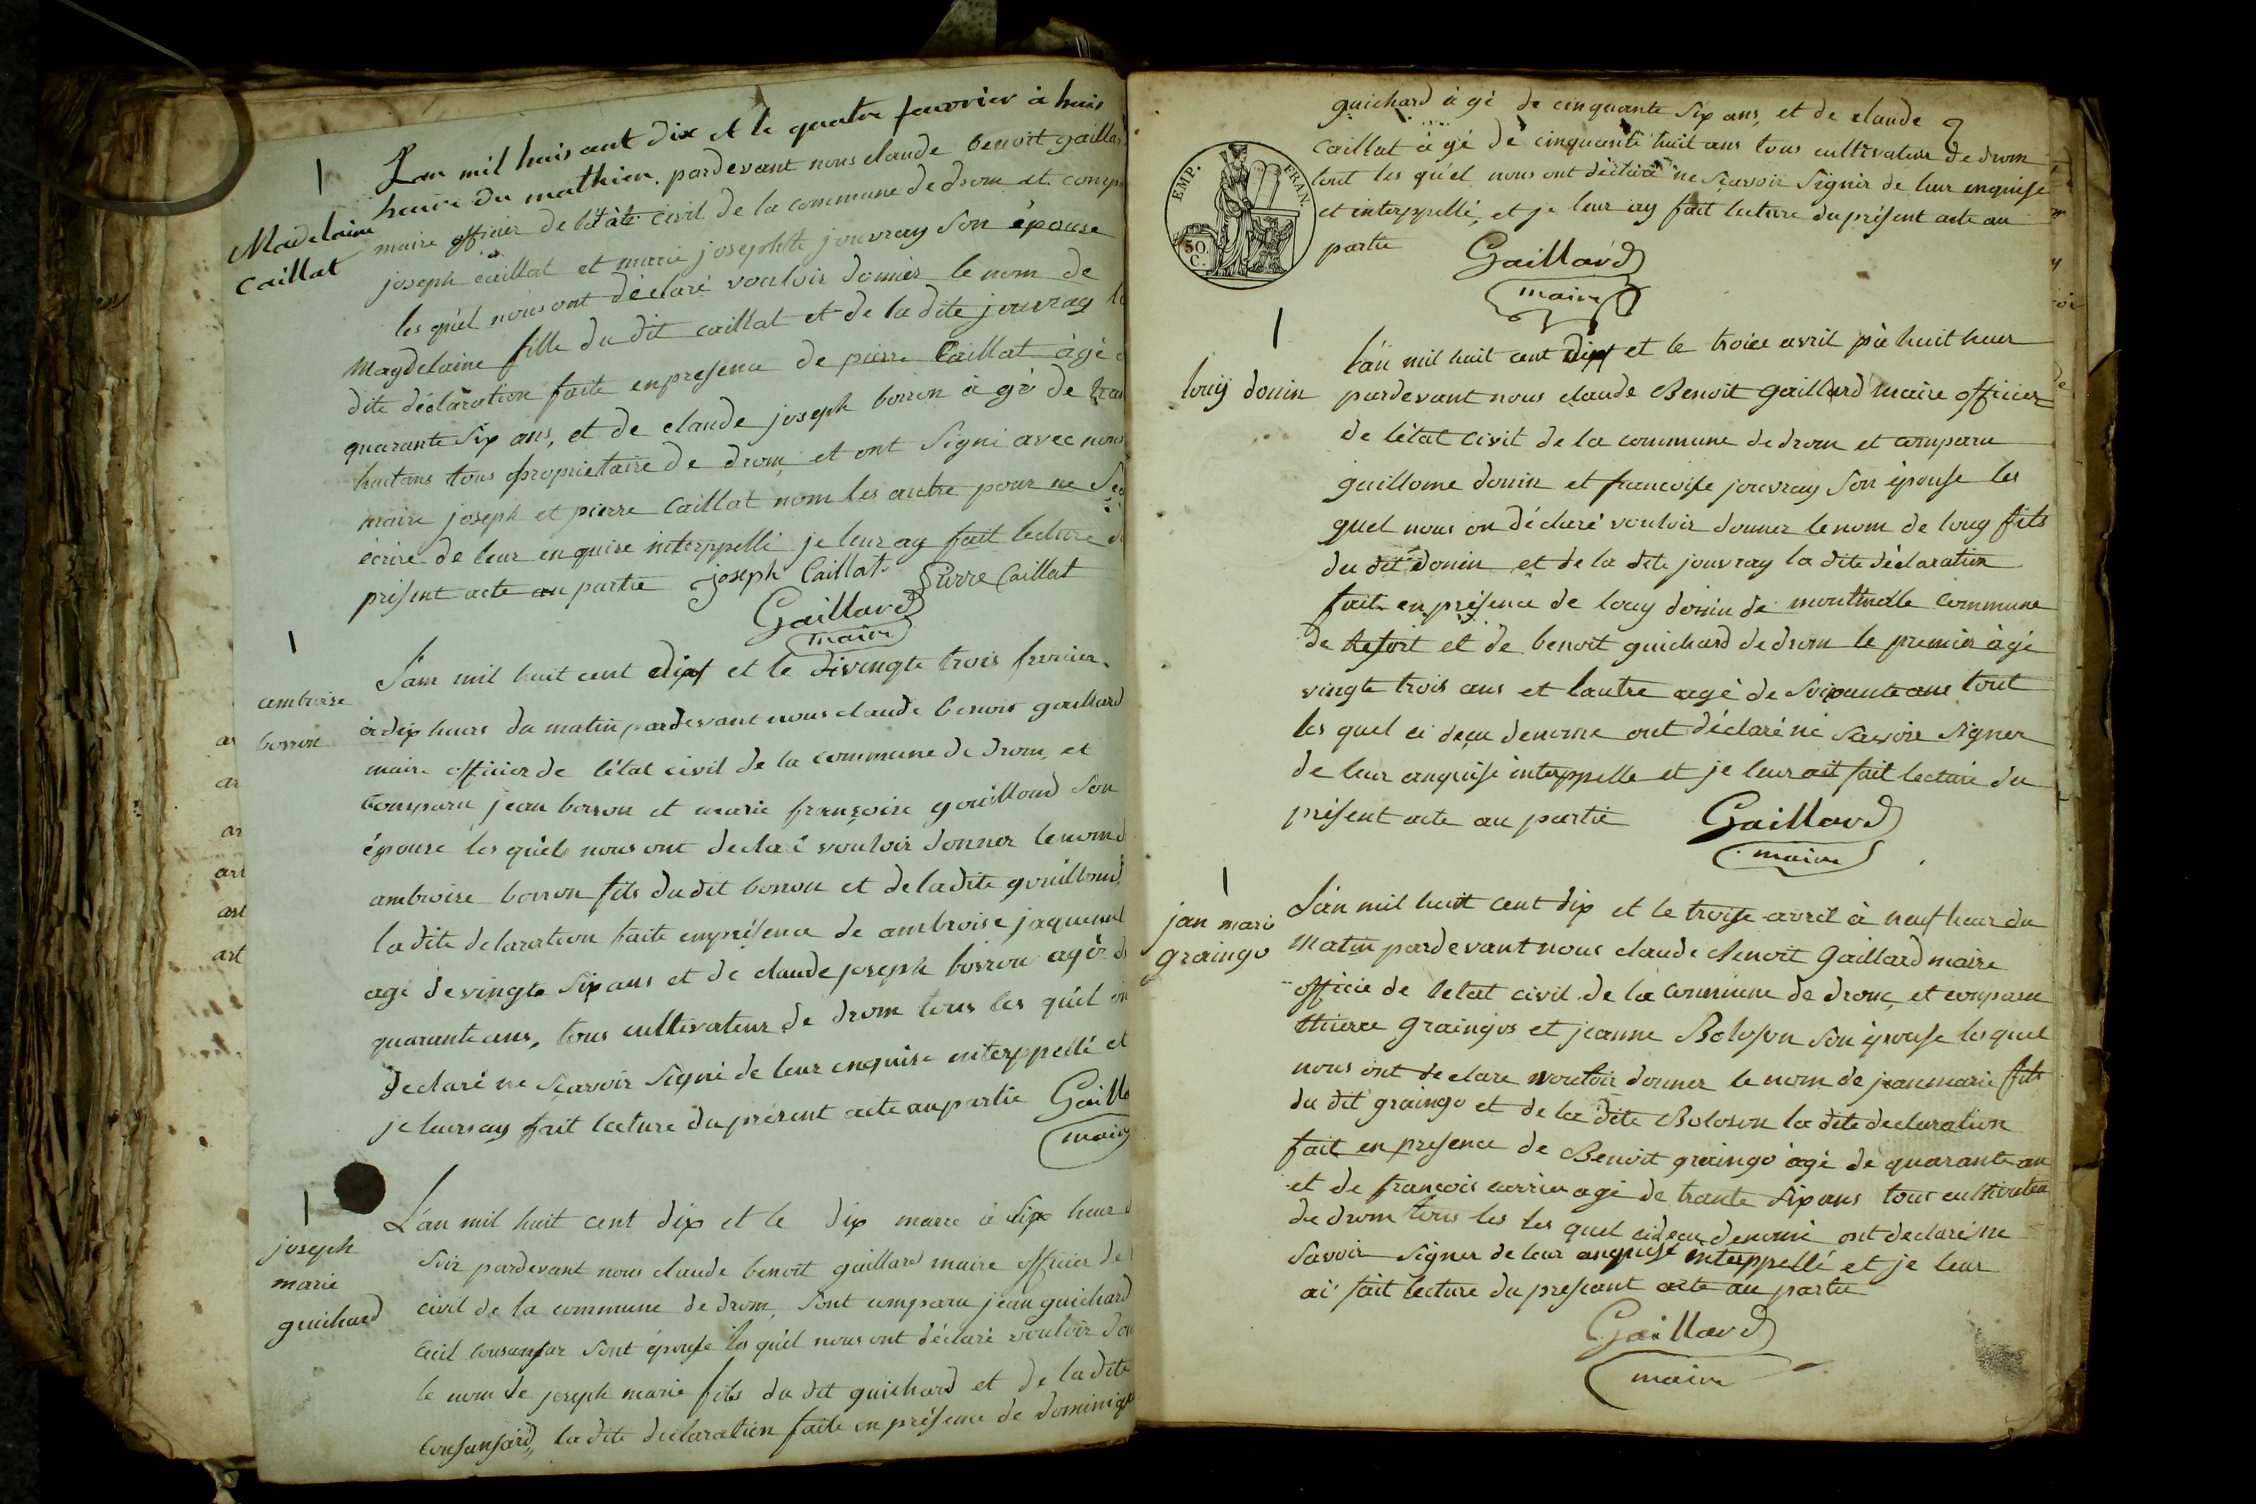 1
Madelaine
Caillat
Lan mil huis cent dix et le quatre fauvrier à huis
heure du mathien pardevant nous claude benoit gaillar
maire officier de l'état civil de la commune de drom et comp
joseph caillat et marie josephte jouvray son épouse
les quel nous ont déclaré vouloir donner le nom de
Magdelaine fille du dit caillat et de la dite jouvray la
dite déclaration faite en presence de pierre Caillat àgé
quarante six ans, et de claude joseph borron à gé de tran
huitans tous propriétaire de drom et ont signé avec nous
maire joseph et pierre Caillat nom les autre pour ne
écrire de leur enquise interppellé je leur ay fait lecture d
présent acte au partie joseph Caillat Pierre Caillat
Gaillard
maire
1
ambroise
borron
L'an mil huit cent dix et le vingte trois fevrier
à dix heurs du matin pardevant nous claude benoit gaillard
maire officier de l'état civil de la commune de drom, et
comparu jean borron et marie françoise gouilloud son
épouse les quels nous ont declaré vouloir donner le nom d
ambroise borron fils du dit borron et de la dite gouilloud
la dite declaration faite en présence de ambroise jaquemet
agé de vingte six ans et de claude joseph borron agér d
quarante ans, tous cultivateur de drom tous les quel on
declaré ne sçavoir signé de leur enquise interppellé et
je leur ay fait lecture du présent acte au partie Gailla
maire
1
joseph
marie
guichard
L'an mil huit cent dix et le dix marce à six heur d
soir pardevant nous claude benoit gaillard maire officier de l
civil de la commune de drom, sont comparu jean guichard
cecil sont épouse les quel nous ont déclaré vouloir don
le nom de joseph marie fils du dit guichard et de la dite
la dite declaration faite en présence de dominique
guichard à gé de cinquante six ans, et de claude
caillat à gé de cinquante huit ans tous cultivateur de drom
tout les quel nous ont déclaré ne sçavoir signér de leur enquise
et interppellé, et je leur ay fait lecture du présent acte au
partie
EMP. FRAN.
50
C.
Gaillard
maire
1
louy donin
l'an mil huit cent dix et le troice avril à huit heur
pardevant nous claude Benoit gaillard maire officier
de l'état civil de la commune de drom et comparu
guillome donin et francoise jouvray son épouse les
quel nous on déclaré vouloir donner le nom de louy fils
du dit donin et de la dite jouvray la dite déclaration
fait en présence de louy donin de commune
de et de benoit guichard de drom le premier àgé
vingte trois ans et lautre agé de soixante ans tout
les quel ci denome ont déclaré ne scavoire signer
de leur anquise interppelle et je leur ait fait lecture du
présent acte au partie Gaillard
maire
1
jan mari
graingo
L'an mil huit cent dix et le troise avril à neuf heur du
Matin pardevant nous claude Benoit Gaillard maire
officie de letat civil de la commune de drom, et comparu
graingos et jeanne Boloson son épouse les quel
nous ont declare vouloir donner le nom de jean marie fils
du dit graingo et de la dite Boloson la dite declaration
fait en presence de Benoit graingo àgé de quarante an
et de francois agé de trante six ans tous cultivateu
de drom tous les les quel denomé ont declaré ne
savoir signer de leur anquise interppellé et je leur
ai fait lecture du prescant acte au partie
Gaillard
maire